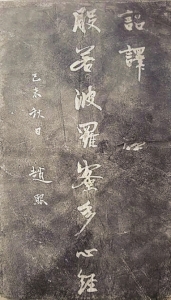 詔譯
般若波羅蜜多心經
己未秋日 趙